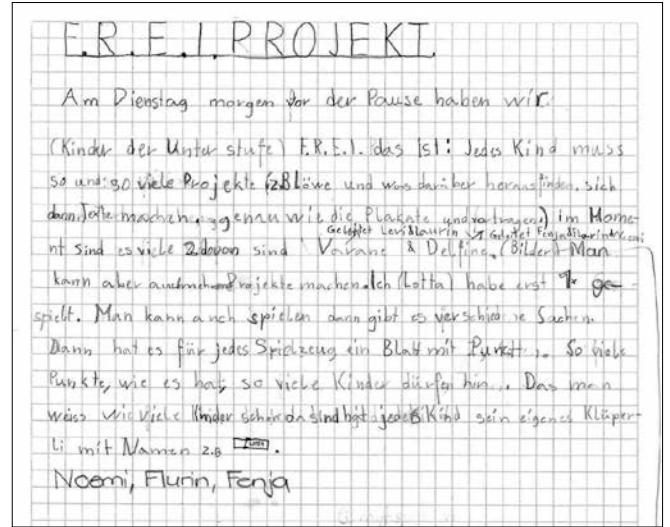 F.R.E.I. PROJEKT
Am Dienstag morgen vor der Pause haben wir
(Kinder der Unter stufe) F.R.E.I. das ist: Jedes Kind muss
so und so viele Projekte (z.B Löwe und was darüber herausfinden, sich
dann Texte machen, genau wie die Plakate und vortragen) im Mome-
Geleitet Levi&Laurin Geleitet Fenja
nt sind es viele 2 davon sind Varane & Delfine. (Bilder) Man
kann aber auch mehr Projekte machen. Ich (Lotta) habe erst 1x ge-
spielt. Man kann auch spielen dann gibt es verschiedene Sachen.
Dann hat es für jedes Spielzeug ein Blatt mit Punkt. So viele
Punkte, wie es hat, so viele Kinder dürfen hin. Das man
weiss wie viele Kinder schon da sind hat jedes Kind sein eigenes Klüper-
li mit Namen z.B Lotta.
Noemi, Flurin, Fenja